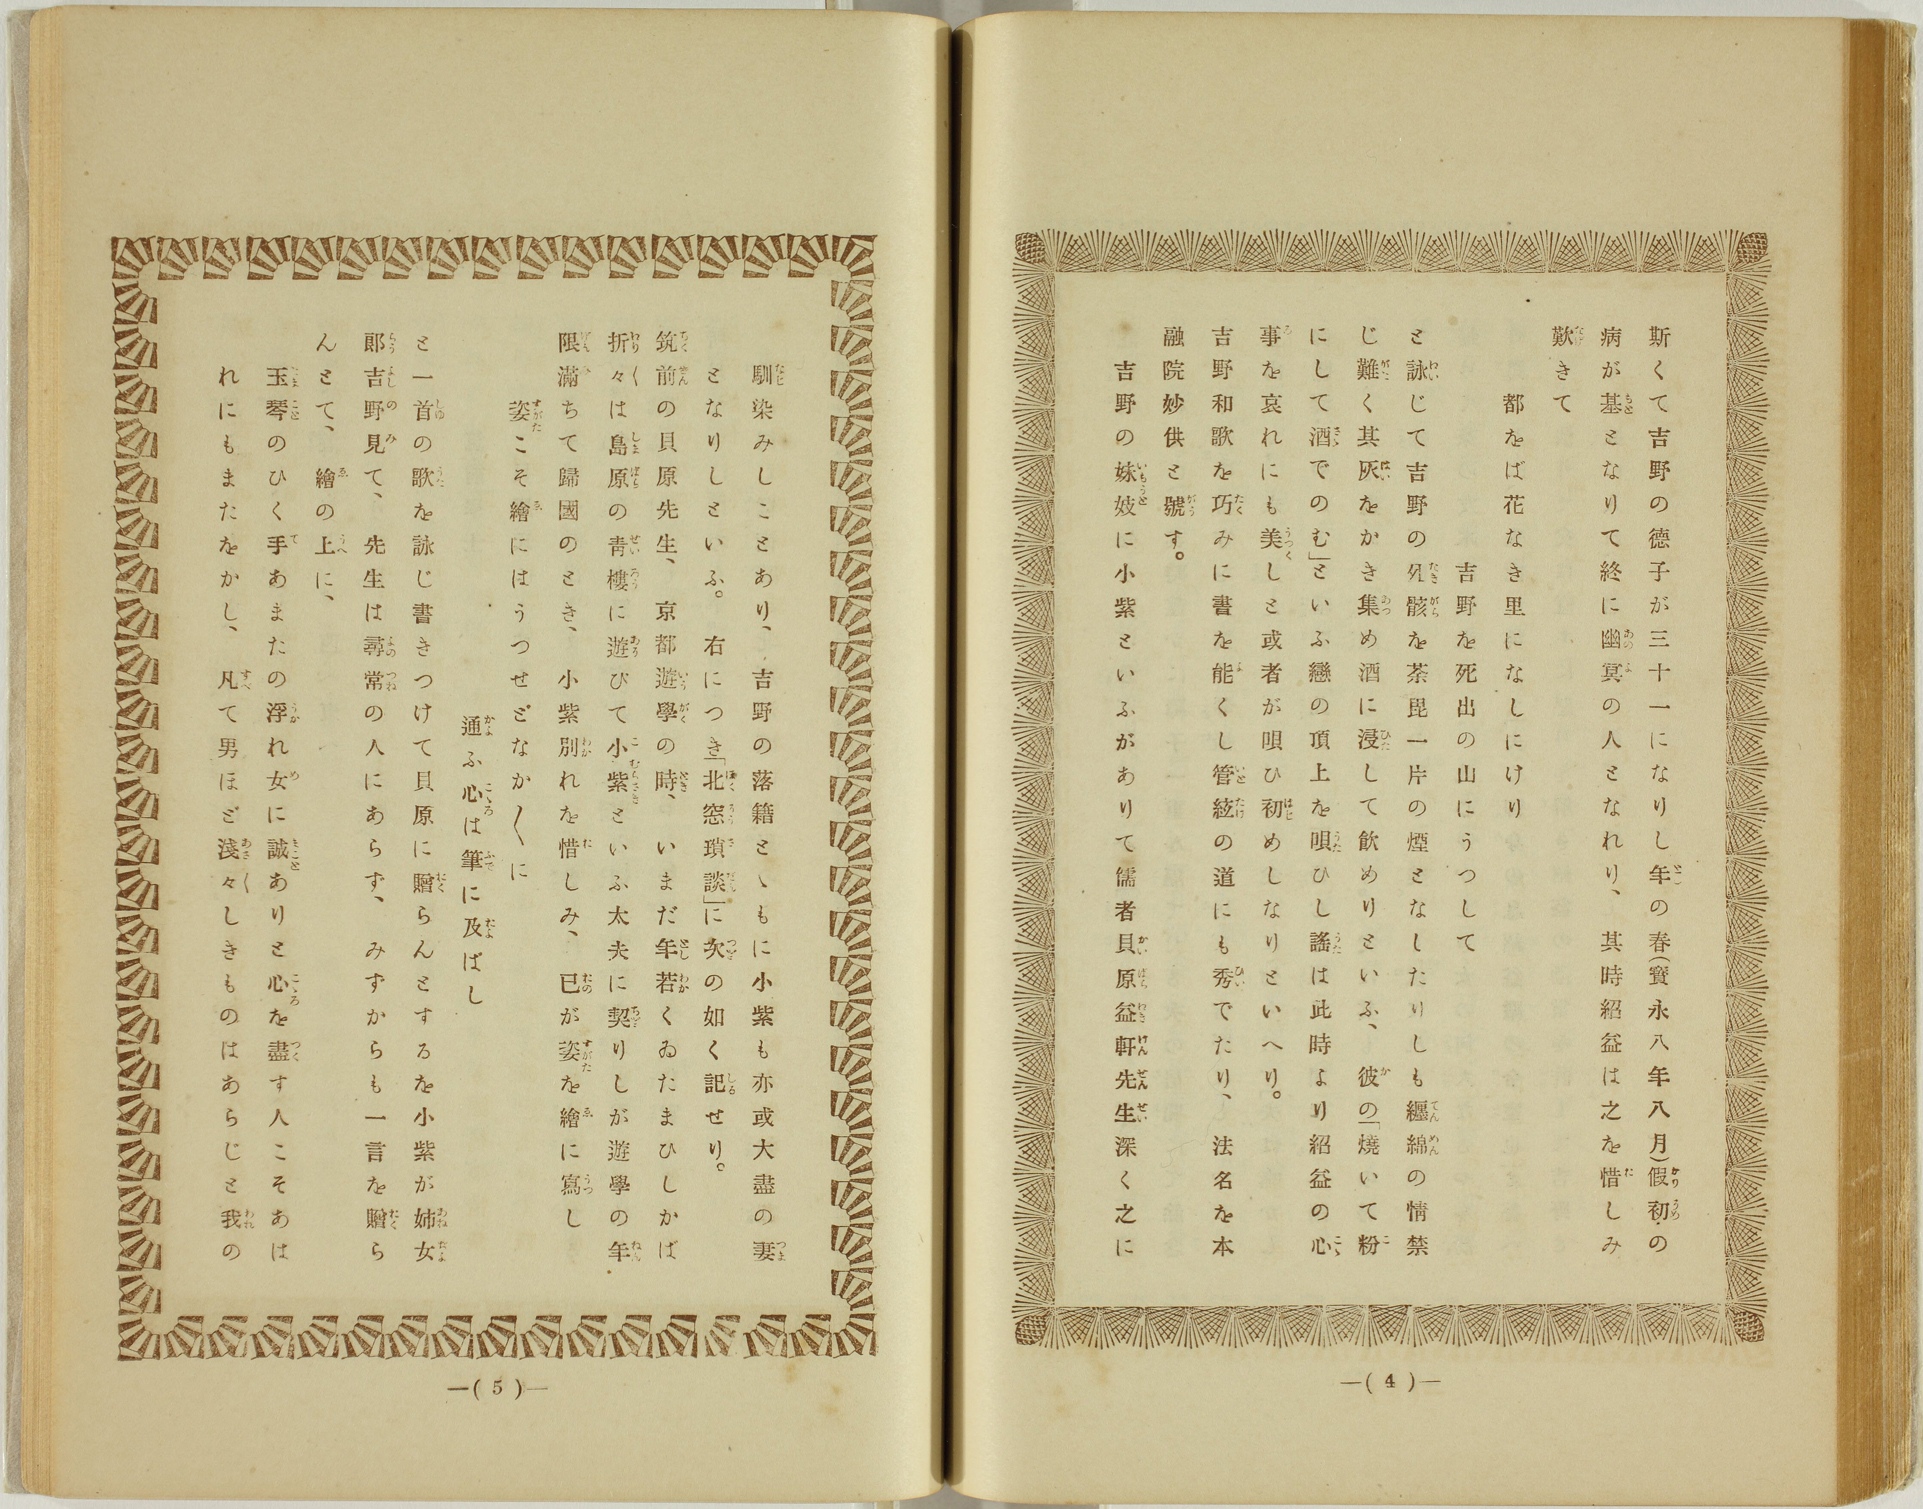 斯くて吉野の德子が三十一になりし年の春(寳永八年八月)假初の
病が基となりて終に幽冥の人となれり、其時紹益は之を惜しみ
歎きて
都をば花なき里になしにけり
吉野を死出の山にうつして
と詠じて吉野の死骸を荼毘一片の煙となしたりしも纒綿の情禁
じ難く其灰をかき集め酒に浸して飮めりといふ、彼の「燒いて粉
にして酒でのむ」といふ戀の頂上を唄ひし謠は此時より紹益の心
事を哀れにも美しと或者が唄ひ初めしなりといへり。
吉野和歌を巧みに書を能くし管絃の道にも秀でたり、法名を本
融院妙供と號す。
吉野の妹妓に小紫といふがありて儒者貝原益軒先生深く之に
—(4)—
馴染みしことあり、吉野の落籍とゝもに小紫も亦或大盡の妻
となりしといふ。右につき「北窓瑣談」に次の如く記せり。
筑前の貝原先生、京都遊學の時、いまだ年若くゐたまひしかば
折々は島原の靑樓に遊びて小紫といふ太夫に契りしが遊學の年
限滿ちて歸國のとき、小紫別れを惜しみ、已が姿を繪に寫し
姿こそ繪にはうつせどなか〱に
通ふ心は筆に及ばし
と一首の歌を詠じ書きつけて貝原に贈らんとするを小紫が姉女
郎吉野見て、先生は尋常の人にあらず、みずからも一言を贈ら
んとて、繪の上に、
玉琴のひく手あまたの浮れ女に誠ありと心を盡す人こそあは
れにもまたをかし、凡て男ほど淺々しきものはあらじと我の
—(5)—